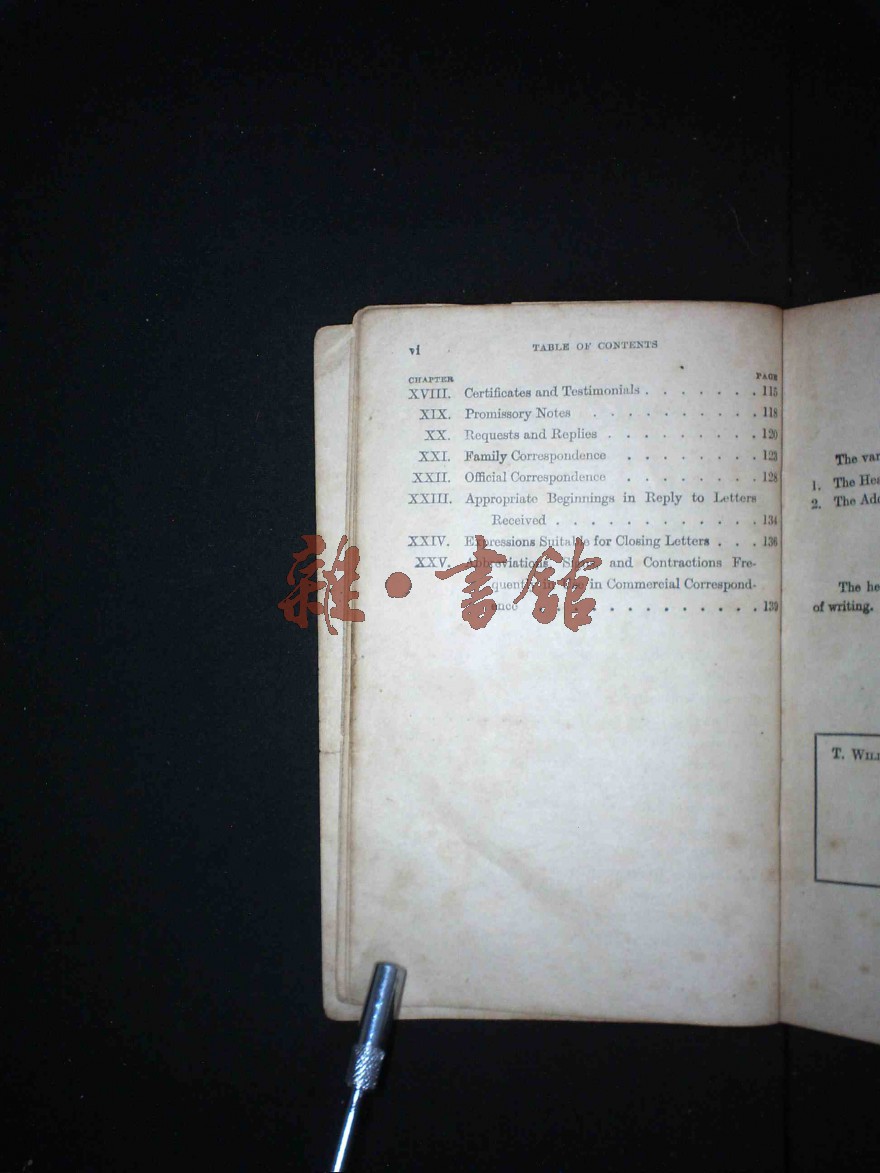 vi TABLE OF CONTENTS
CHAPTER PAGE
XVIII. Certificates and Testimonials . . . . . . . 115
XIX. Promissory Notes . . . . . . . . . 118
XX. Requests and Replies . . . . . . . . . 120
XXI. Family Correspondence . . . . . . . 123
XXII. Official Correspondence . . . . . . . 128
XXIII. Appropriate Beginnings in Reply to Letters
Received . . . . . . . . . . . . . 134
XXIV. Expressions Suitable for Closing Letters . . . 136
XXV. Abbreviations, Signs, and Contractions Fre-
quently in Use in Commercial Correspond-
ence . . . . . . . . . . . . 139
雜·書館
The var
1. The Hea
2. The Add
The he
of writing.
T. WILL